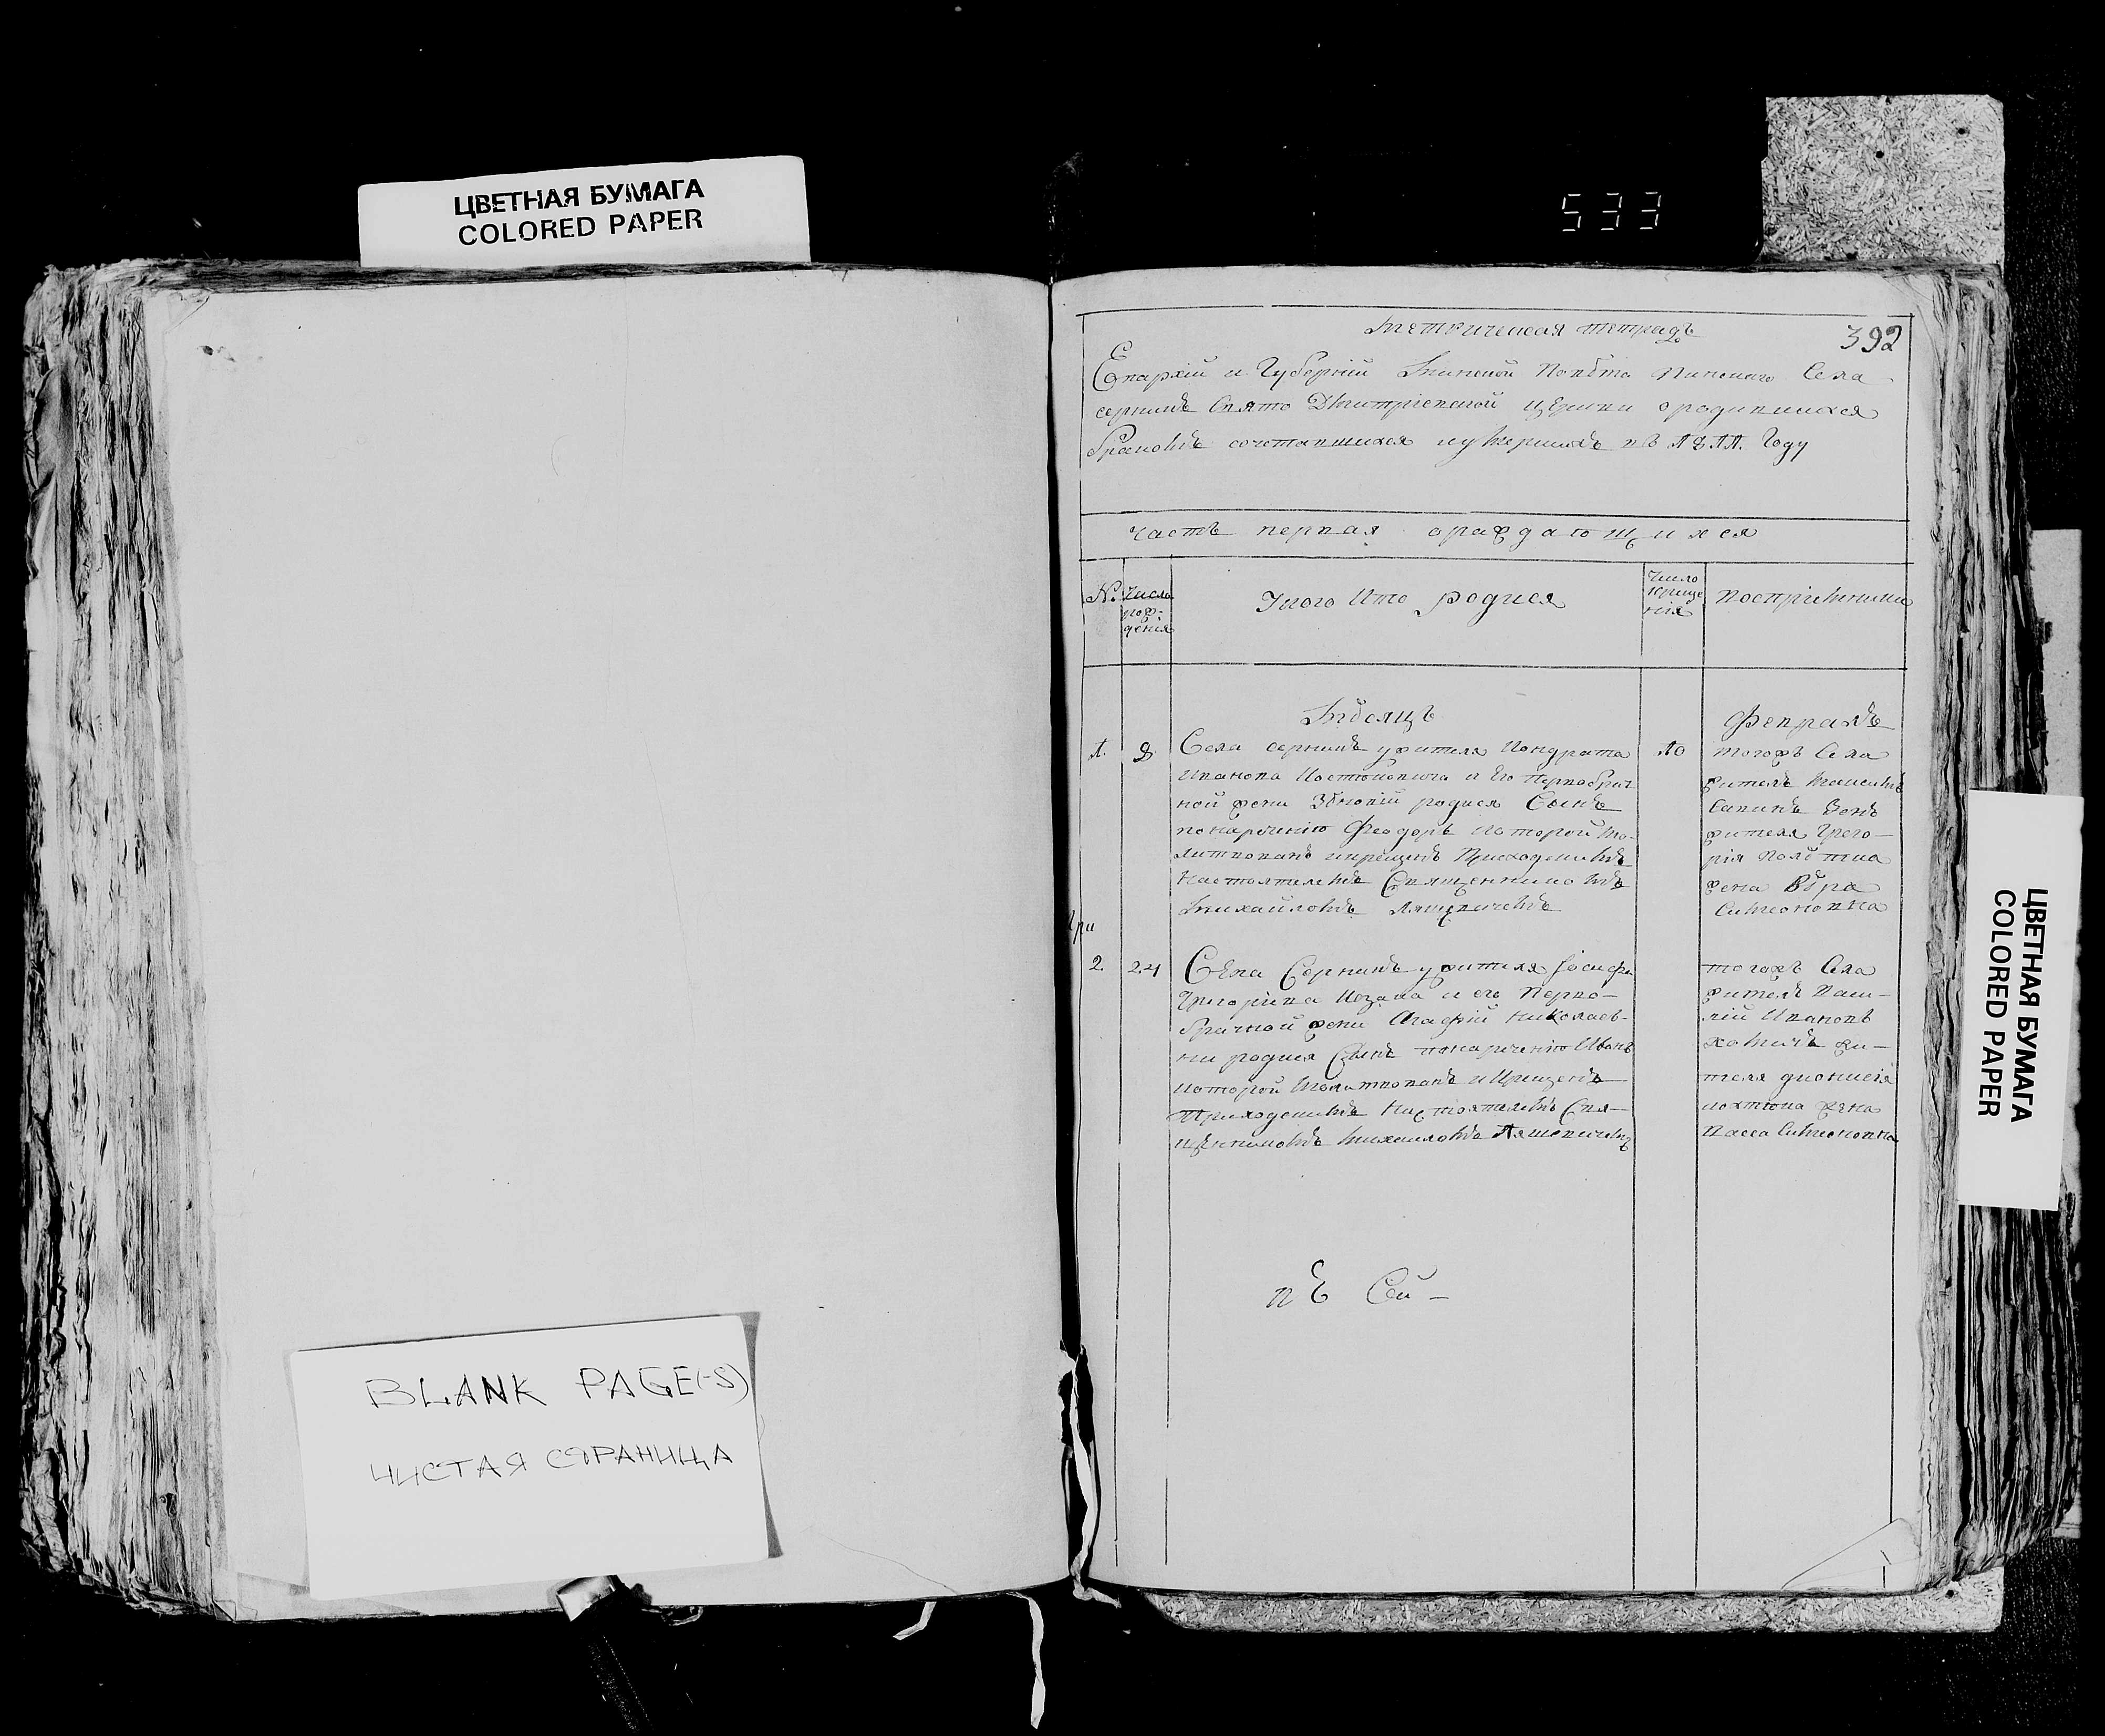 ЦВЕТНАЯ БУМАГА
COLORED PAPER
533
392
Метрическая тетрадь
Епархіи и Губерніи Минской Повѣта Пинскаго Села
серникъ Свято Димитріевской церкви ородившихся
бракомъ сочетавшихся иумершихъ въ Году
Часть первая ораждающихся
№. Число рож-денія
Укого Кто родися
Число креще нія
Воспріемники
Мѣсяцъ
Февраль
1. 8
Села серникъ ужителя Кондрата
Иванова и Его Первобрач
ной жены Зѣновіи родися Сынъ
понаречению Феодоръ которой мо-
литвованъ икрещенъ Приходскимъ
Настоятелемъ Священникомъ
Михайломъ
10
тогожъ Села
житель
жителя Григо-
рія
жена Вѣра
Симеоновна
При
2 24
Села Серникъ ужителя Іосифа
Григоріева и его Перво-
брачной жены Агафіи Николаев-
ны родися Сынъ понаречению Иванъ
которой Молитвованъ иКрещенъ
Приходскимъ Настоятелемъ Свя-
щенникомъ Михаиломъ
тогожъ Села
житель Васи-
лій Ивановъ
жи-
теля дионисія
жена
Васса Симеоновна
ЦВЕТНАЯ БУМАГА
COLORED PAPER
BLANK PAGE(-S)
ЧИСТАЯ СТРАНИЦА